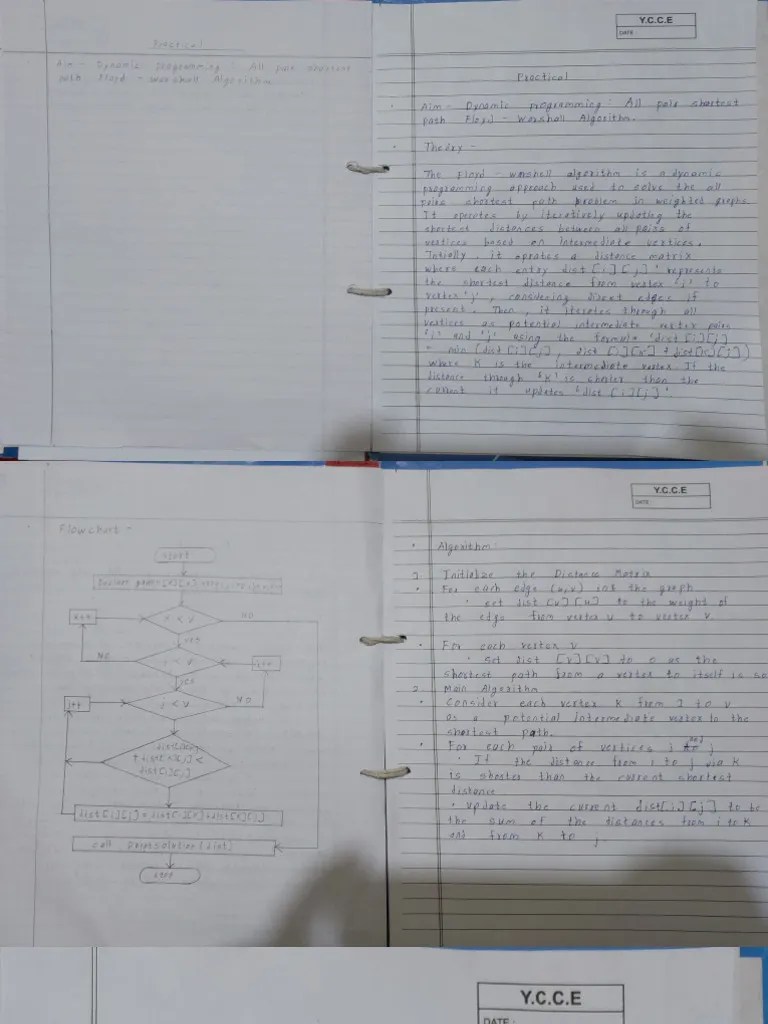 Practical
Aim - Dynamic programming : All pair shortest
path Floyd - Warshall Algorithm
Y.C.C.E
DATE
Practical
Aim - Dynamic programming : All pair shortest
path Floyd - Warshall Algorithm.
Theory -
The Floyd - warshall algorithm is a dynamic
programming approach used to solve the all
pairs shortest path problem in weighted graphs
It operates by iteratively updating the
shortest distances between all pairs of
vertices based on intermediate vertices.
Intially, it oprates a distance matrix
where each entry dist [i][j]' represents
the shortest distance from vertex 'i' to
vertex 'j', considering direct edges if
present. Then, it iterates through all
vertices as potential intermediate vertex pairs
'i' and 'j' using the formula 'dist [i][j]
= min (dist [i][j], dist [i][k] + dist[k][j])
where K is the intermediate vertex. If the
distance through 'K' is shorter than the
current it updates 'dist [i][j]'
Flowchart -
start
K < V
NO
K++
yes
i < V
NO
i++
yes
j < V
NO
j++
dist[i][k]
+ dist[k][j] <
dist[i][j]
dist[i][j] = dist[i][k]+dist[k][j]
call printsolution (dist)
end
Y.C.C.E
DATE
Algorithm:
1. Initialize the Distance Matrix
For each edge (u,v) int the graph
set dist [u][v] to the weight of
the edge from vertex u to vertex v.
For each vertex v
set dist [v][v] to 0 as the
shortest path from a vertex to itself is so
2. Main Algorithm
Consider each vertex K from 1 to v
as a potential intermediate vertex in the
shortest path.
For each pair of vertices i and j
If the distance from i to j via K
is shorter than the current shortest
distance
update the current dist[i][j] to be
the sum of the distances from i to K
and from K to j.
Y.C.C.E
DATE :